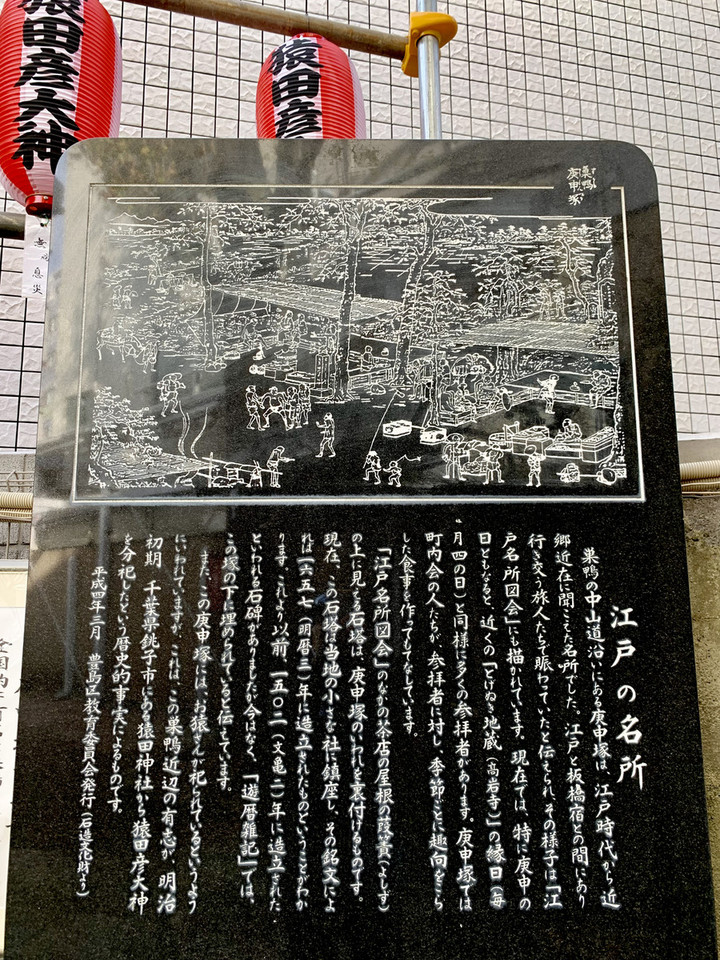 猿田彦大神
猿田彦
無病息災
巣鴨
庚申塚
江戸の名所
巣鴨の中山道沿いにある庚申塚は、江戸時代から近
郷近在に聞こえた名所でした。江戸と板橋宿との間にあり
行き交う旅人たちで賑わっていたと伝えられ、その様子は「江
戸名所図会」にも描かれています。現在では、特に庚申の
日ともなると、近くの「とげぬき地蔵(高岩寺)」の縁日(毎
月四の日)と同様に多くの参拝者があります。庚申塚では
町内会の人たちが、参拝者に対し、季節ごとに趣向をこら
した食事を作ってもてなしています。
「江戸名所図会」のなかの茶店の屋根の葭簀(よしず)
の上に見える石塔は、庚申塚のいわれを裏付けるものです。
現在、この石塔は当地の小さな社に鎮座し、その銘文によ
れば一六五七(明暦三)年に造立されたものということがわか
ります。これより以前、一五〇二(文亀二)年に造立された
といわれる石碑がありましたが今はなく、「遊暦雑記」では、
この塚の下に埋められていると伝えています。
また、この庚申塚には、お猿さんが祀られているというよう
にいわれていますが、これは、この巣鴨近辺の有志が、明治
初期、千葉県銚子市にある猿田神社から猿田彦大神
を分祀したという歴史的事実によるものです。
平成四年三月 豊島区教育委員会発行(石造文化財より)